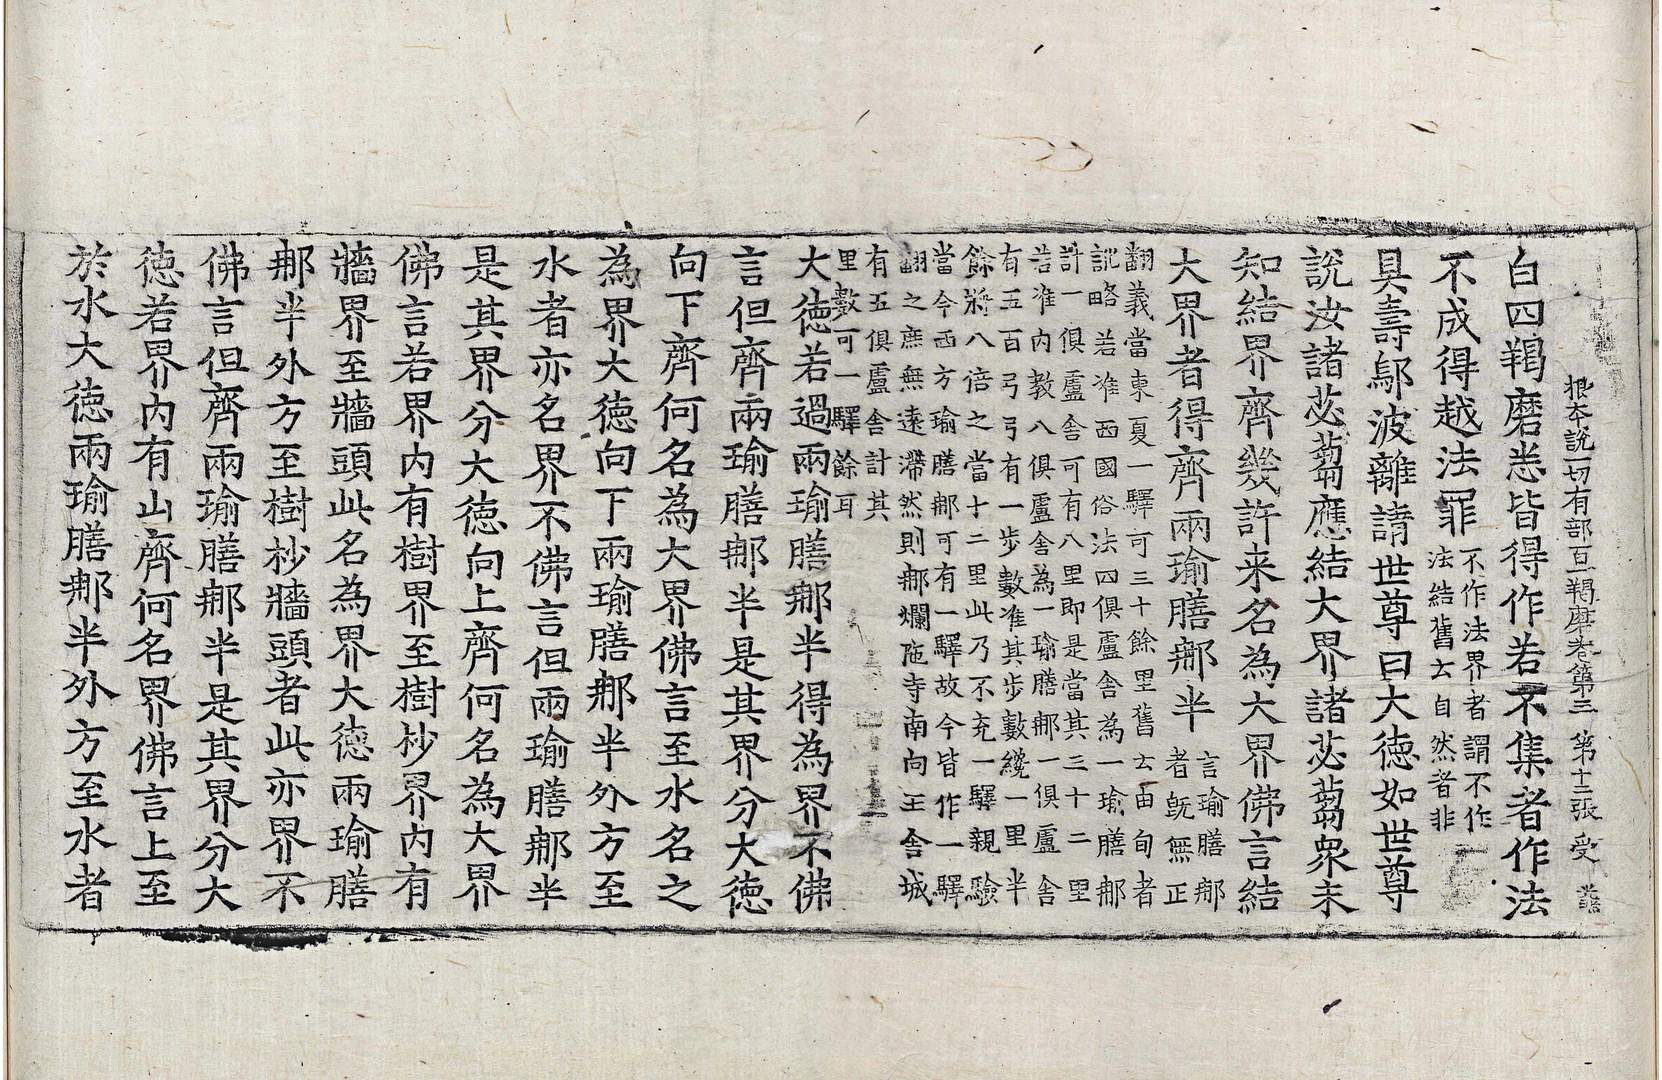 根本說一切有部百一羯磨卷第三 第十二張 受
白四羯磨悉皆得作若不集者作法
不成得越法罪
不作法界者謂不作
法結舊云自然者非
具壽鄔波離請世尊曰大徳如世尊
說汝諸苾芻應結大界諸苾芻衆未
知結界齊幾許来名為大界佛言結
大界者得齊兩瑜膳郍半
言瑜膳郍
者旣無正
翻義當東夏一驛可三十餘里舊云由旬者
訛略若准西國俗法四俱盧舍為一瑜膳郍
計一俱盧舍可有八里即是當其三十二里
若准內教八俱盧舍為一瑜膳郍一俱盧舍
有五百弓弓有一步數准其步數纔一里半
餘將八倍之當十二里此乃不充一驛親驗
當今西方瑜膳郍可有一驛故今皆作一驛
翻之庶無遠滯然則郍爛陁寺南向王舍城
有五俱盧舍計其
里數可一驛餘耳
大徳若過兩瑜膳郍半得為界不佛
言但齊兩瑜膳郍半是其界分大徳
向下齊何名為大界佛言至水名之
為界大徳向下兩瑜膳郍半外方至
水者亦名界不佛言但兩瑜膳郍半
是其界分大徳向上齊何名為大界
佛言若界內有樹界至樹杪界內有
牆界至牆頭此名為界大徳兩瑜膳
郍半外方至樹杪牆頭者此亦界不
佛言但齊兩瑜膳郍半是其界分大
徳若界內有山齊何名界佛言上至
於水大徳兩瑜膳郍半外方至水者